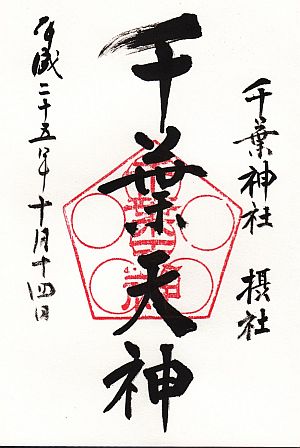 千葉神社 摂社
千葉天神
平成二十五年十月十四日